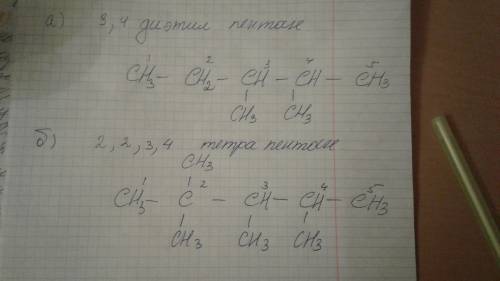 а) 3,4 диэтил пентан
1 2 3 4 5
CH3 - CH2 - CH - CH - CH3
CH3 CH3
б) 2, 2, 3, 4 тетра пентан
CH3
1 2 3 4 5
CH3 - C - CH - CH - CH3
CH3 CH3 CH3